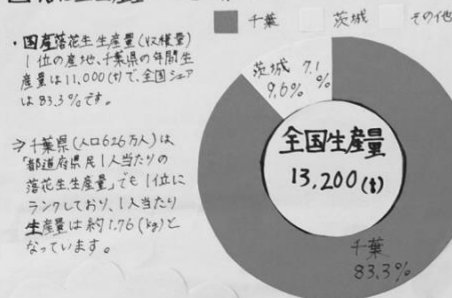 千葉 茨城 その他
・国産落花生生産量(収穫量)
1位の産地、千葉県の年間生
産量は11,000(t)で、全国シェア
は83.3%です。
⇒千葉県(人口626万人)は
「都道府県民1人当たりの
落花生生産量」でも1位に
ランクしており、1人当たり
生産量は約1.76(kg)と
なっています。
茨城
9.6%
7.1
%
全国生産量
13,200(t)
千葉
83.3%